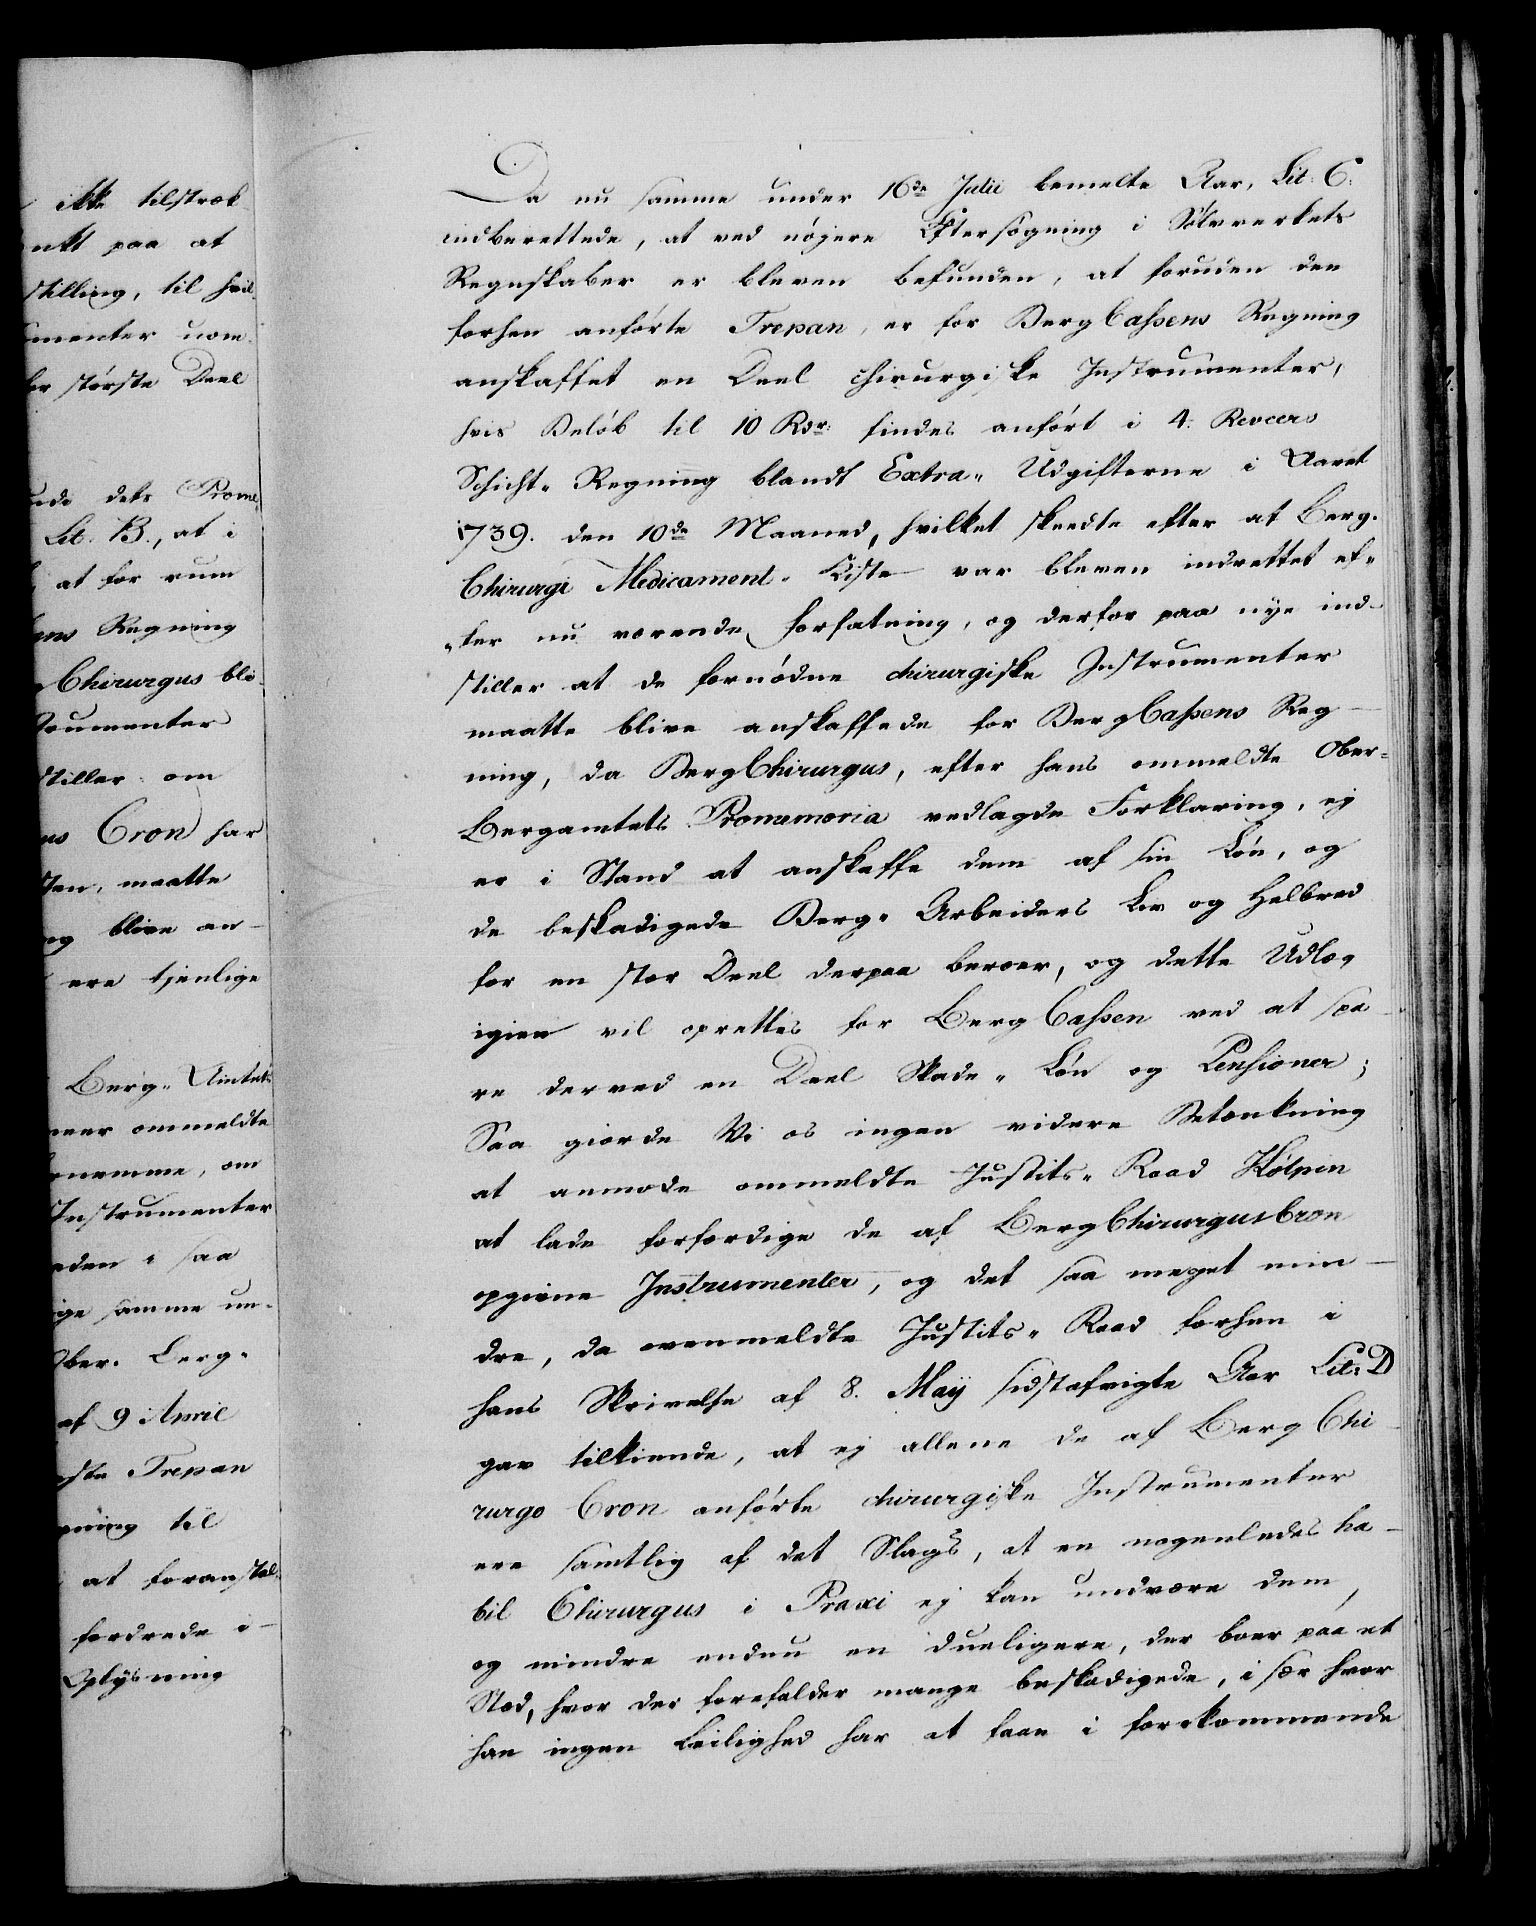 ikke tilstræk-
paa at
stilling, til hvil-
menter uom-
for største Deel
dets Prome,
Lit. B., at i
at for rum
Regning
Chirurgus bli-
strumenter
stiller om
Cron har
maatte
blive an-
ere tjenlige
Berg- Amtets
ommeldte
om
Instrumenter
i saa
samme un-
Ober- Berg-
af 9 April
Trepan
til
at foranstal-
fordrede i-
Oplysning
Da nu samme under 16de Julii bemelte Aar, Lit: C:
indberettede, at ved nøjere Eftersøgning i Sølvverkets
Regnskaber er bleven befunden, at foruden den
forhen anførte Trepan, er for BergCassens Regning
anskaffet en Deel chirurgiske Instrumenter,
hvis Beløb til 10 Rdr: findes anført i 4: Revcers
Schicht- Regning blandt Extra- Udgifterne i Aaret
1739. den 10de Maaned, hvilket skeedte efter at Berg-
Chirurgi Medicament- Kiste var bleven indrettet ef-
-ter nu værende Forfatning, og derfor paa nye ind-
stiller at de fornødne chirurgiske Instrumenter
maatte blive anskaffede for BergCassens Reg-
ning, da BergChirurgus, efter hans ommeldte Ober-
Bergamtets Promemoria vedlagde Forklaring, ej
er i Stand at anskaffe dem af sin Løn, og
de beskadigede Berg- Arbeiders Liv og Helbred
for en stor Deel derpaa beroer, og dette Udlæg
igien vil oprettes for BergCassen ved at spa-
re derved en Deel Skade- Løn og Pensioner;
Saa giorde Vi os ingen videre Betænkning
at anmode ommeldte Justits- Raad Kølpin
at lade forfærdige de af BergChirurgus Cron
opgivne Instrumenter, og det saa meget min-
dre, da ovenmeldte Justits- Raad forhen i
hans Skrivelse af 8. Maÿ sidstafvigte Aar Lit: D
gav tilkiende, at ej allene de af Berg Chi-
rurgo Cron anførte chirurgiske Instrumenter
ere samtlig af det Slags, at en nogenledes ha-
bil Chirurgus i Praxi ej kan undvære dem,
og mindre endnu en dueligere, der boer paa et
Sted, hvor der forefalder mange beskadigede, i sær hvor
han ingen Leilighed har at faae i forekommende